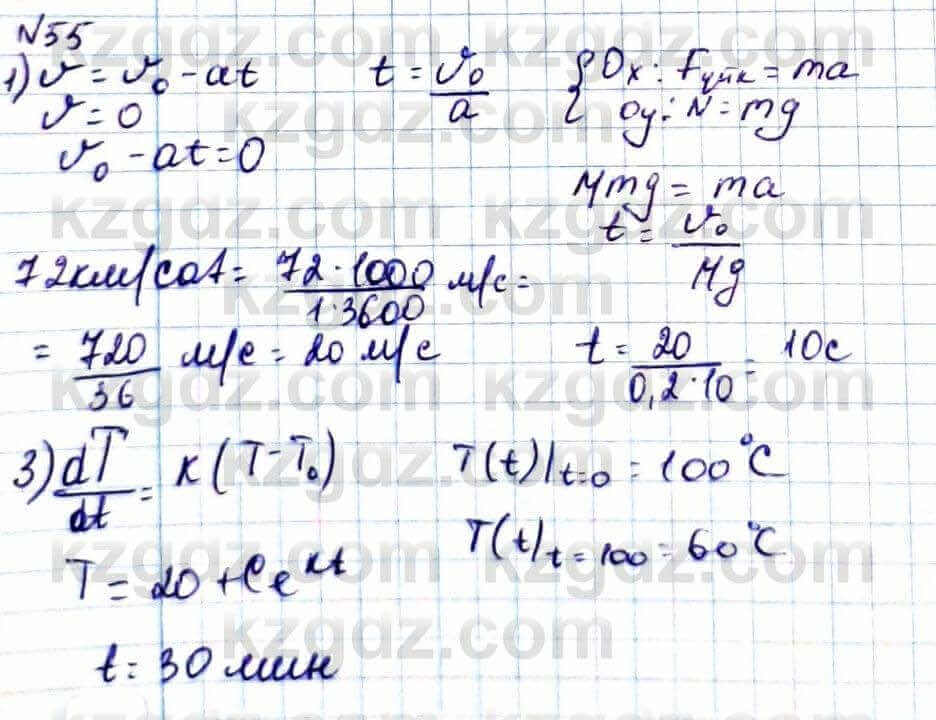 №55
1) v = v₀ - at
v = 0
v₀ - at = 0
t = v₀/a
{ Ox: Fүйк = ma
Oy: N = mg
Mmg = ma
t = v₀/Mg
72км/сат = 72·1000/1·3600 м/с =
= 720/36 м/с = 20 м/с
t = 20/0,2·10 = 10с
3) dT/dt = к(T-T₀)
T(t)|t=0 = 100°C
T = 20 + Ce^kt
T(t)|t=100 = 60°C
t = 30 мин
kzgdz.com